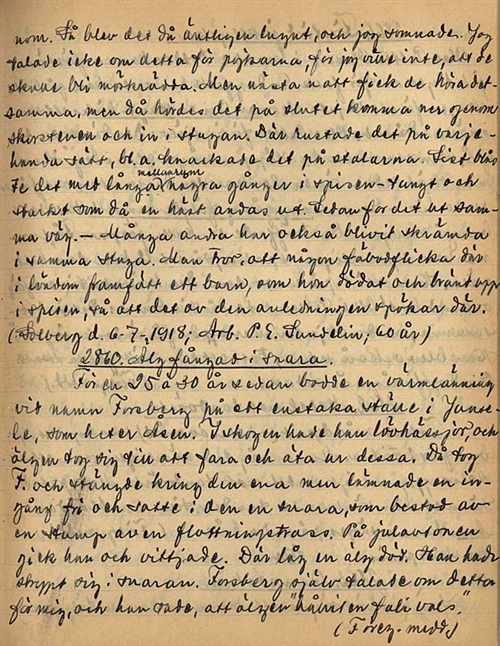 nom. Så blev det då äntligen lugnt, och jag somnade. Jag
talade icke om detta för pojkarna, för jag ville inte, att de
skulle bli mörkrädda. Men nästa natt fick de höra det-
samma, men då hördes det på slutet komma ner genom
skorstenen och in i stugan. Där rustade det på varje-
handa sätt, bl. a. knackade det på stolarna. Sist blås
te det med långa mellanrum några gånger i spisen – tungt och
starkt som då en häst andas ut. Sedan for det ut sam-
ma väg. – Många andra har också blivit skrämda
i samma stuga. Man tror, att någon fäbodflicka där
i löndom framfött ett barn, som hon dödat och bränt upp
i spisen, så att det av den anledningen spökar där.
(Solberg d. 6-7-1918; Arb. P. E. Sundelin; 60 år)
2860. Älg fångad i snara.
För en 25 à 30 år sedan bodde en värmlänning
vid namn Forsberg på ett enstaka ställe i Junse-
le, som heter Åsen. I skogen hade han lövhässjor, och
älgen tog sig till att fara och äta ur dessa. Då tog
F. och stängde kring den ena men lämnade en in-
gång fri och satte i den en snara, som bestod av
en stump av en flottningstross. På julaftonen
gick han och vittjade. Där låg en älg död. Han hade
strypt sig i snaran. Forsberg själv talade om detta
för mig, och han sade, att älgen "
(Föreg. medd.)